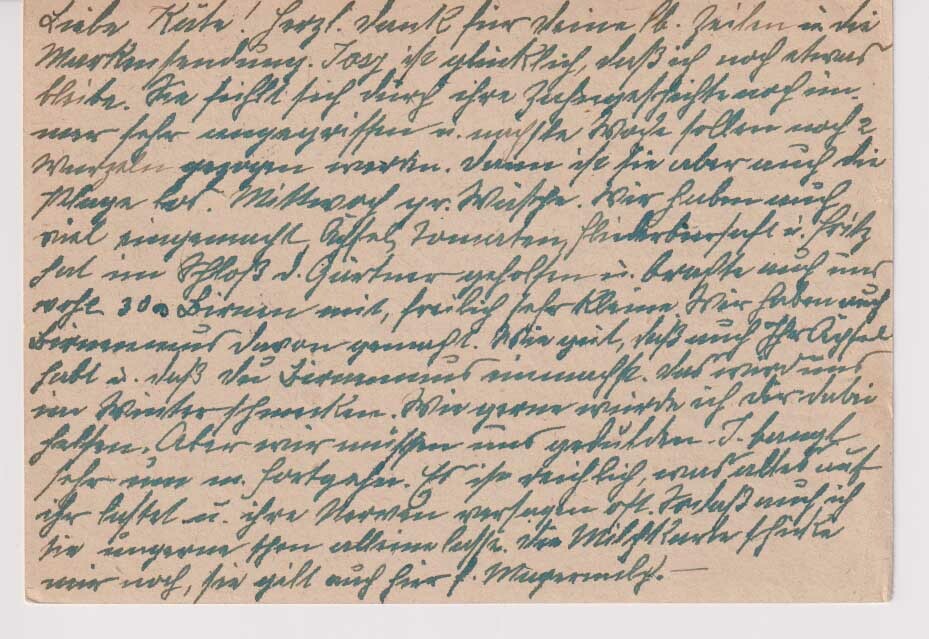 Liebe Käte! Herzl. Dank für Deine lb. Zeilen u. die
Markensendung. Josz ist glücklich, daß ich noch etwas
bleibe. Sie fühlt sich durch ihre Zahngeschichte noch im-
mer sehr angegriffen u. nächste Woche sollen noch 2
Wurzeln gezogen werden. Dann ist sie aber auch die
Plage los. Mittwoch gr. Wäsche. Wir haben auch
viel eingemacht, Äpfel, Tomaten, Fliederbeersaft u. Fritz
hat im Schloß d. Gärtner geholfen u. brachte auch uns
wohl 300 Birnen mit, freilich sehr kleine. Wir haben auch
Birnenmus davon gemacht. Wie gut, daß auch Ihr Äpfel
habt u. daß Du Birnenmus einmachst. Das wird uns
im Winter schmecken. Wie gerne würde ich Dir dabei
helfen. Aber wir müssen uns gedulden. J. bangt
sehr um m. Fortgehn. Es ist reichlich, was alles auf
ihr lastet u. ihre Nerven versagen oft. Sodaß auch ich
sie ungerne schon alleine lasse. Die Milchkarte schicke
mir noch, sie gilt auch hier f. Magermilch. —